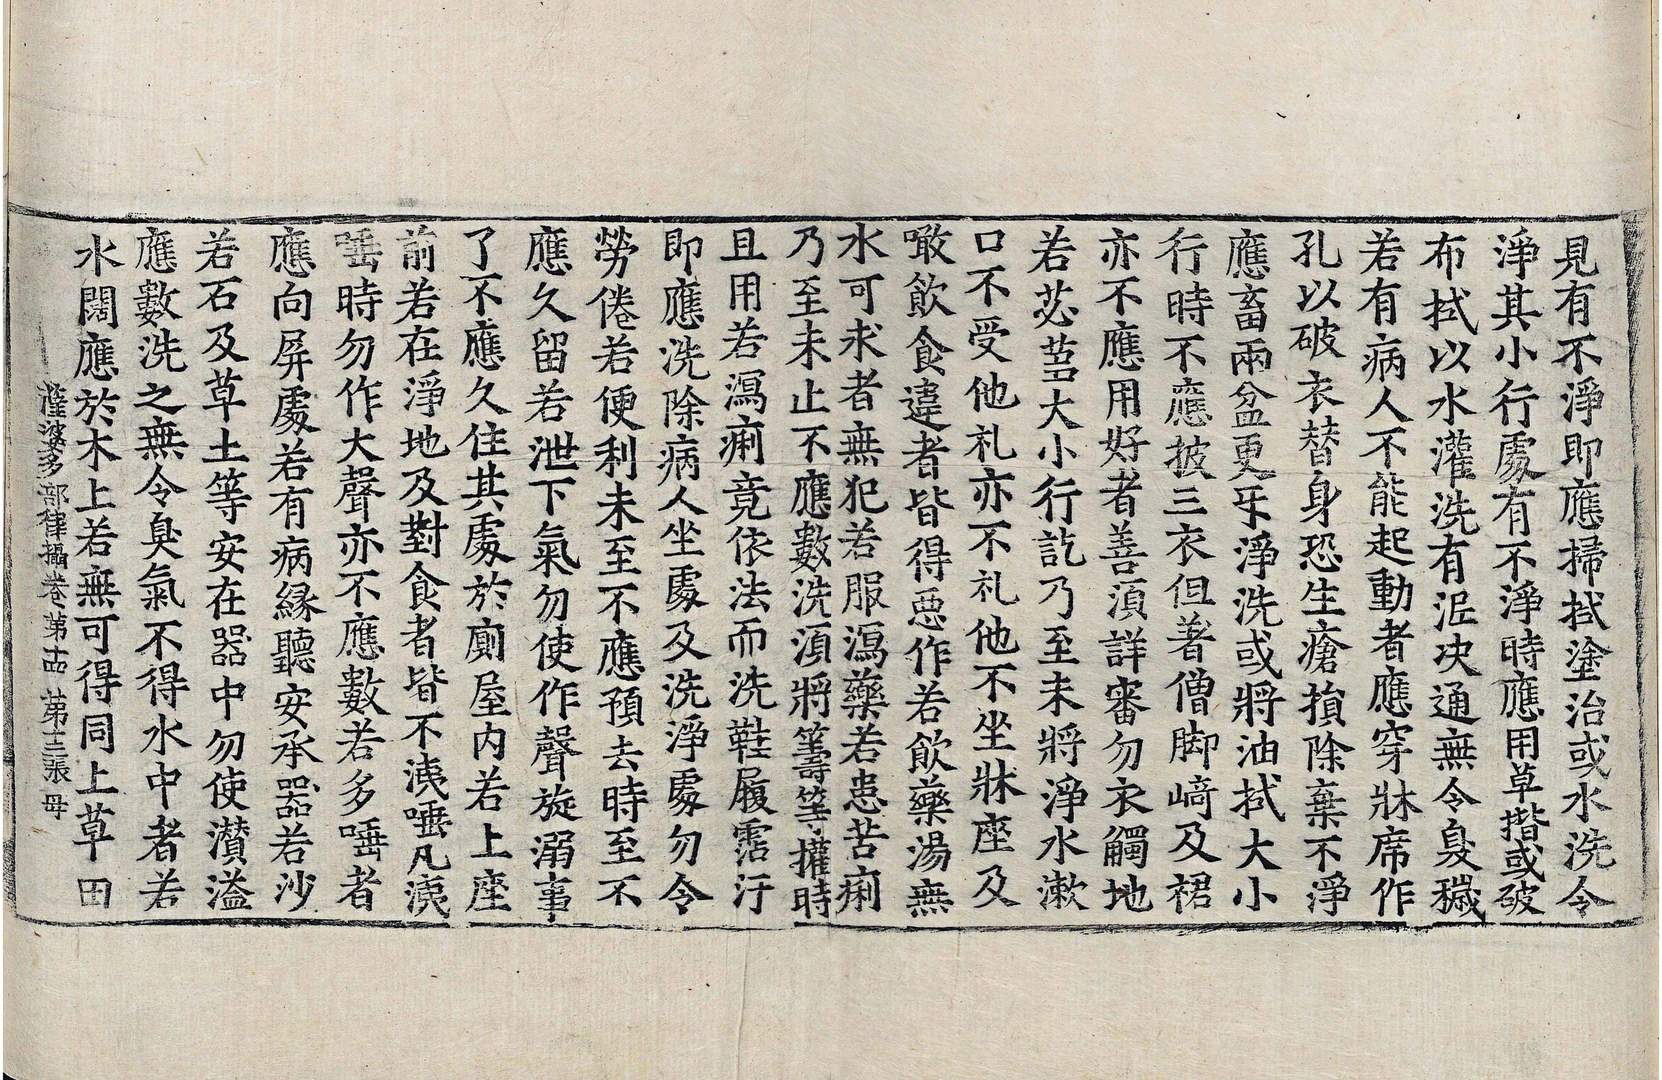 見有不淨即應掃拭塗治或水洗令
淨其小行處有不淨時應用草揩或破
布拭以水灌洗有泥決通無令臭穢
若有病人不能起動者應穿牀席作
孔以破衣替身恐生瘡損除棄不淨
應畜兩盆更牙淨洗或將油拭大小
行時不應披三衣但著僧脚﨑及裙
亦不應用好者善須詳審勿衣觸地
若苾芻大小行訖乃至未將淨水漱
口不受他礼亦不礼他不坐牀座及
噉飲食違者皆得惡作若飲藥湯無
水可求者無犯若服瀉藥若患苦痢
乃至未止不應數洗須將籌等擁時
且用若瀉痢竟依法而洗鞋履霑汙
即應洗除病人坐處及洗淨處勿令
勞倦若便利未至不應預去時至不
應久留若泄下氣勿使作聲旋溺事
了不應久住其處於廁屋内若上座
前若在淨地及對食者皆不洟唾凡洟
唾時勿作大聲亦不應數若多唾者
應向屏處若有病緣聽安承器若沙
若石及草土等安在器中勿使濽溢
應數洗之無令臭氣不得水中者若
水闊應於木上若無可得同上草 田
薩婆多部律攝卷第十四 第十二張 母